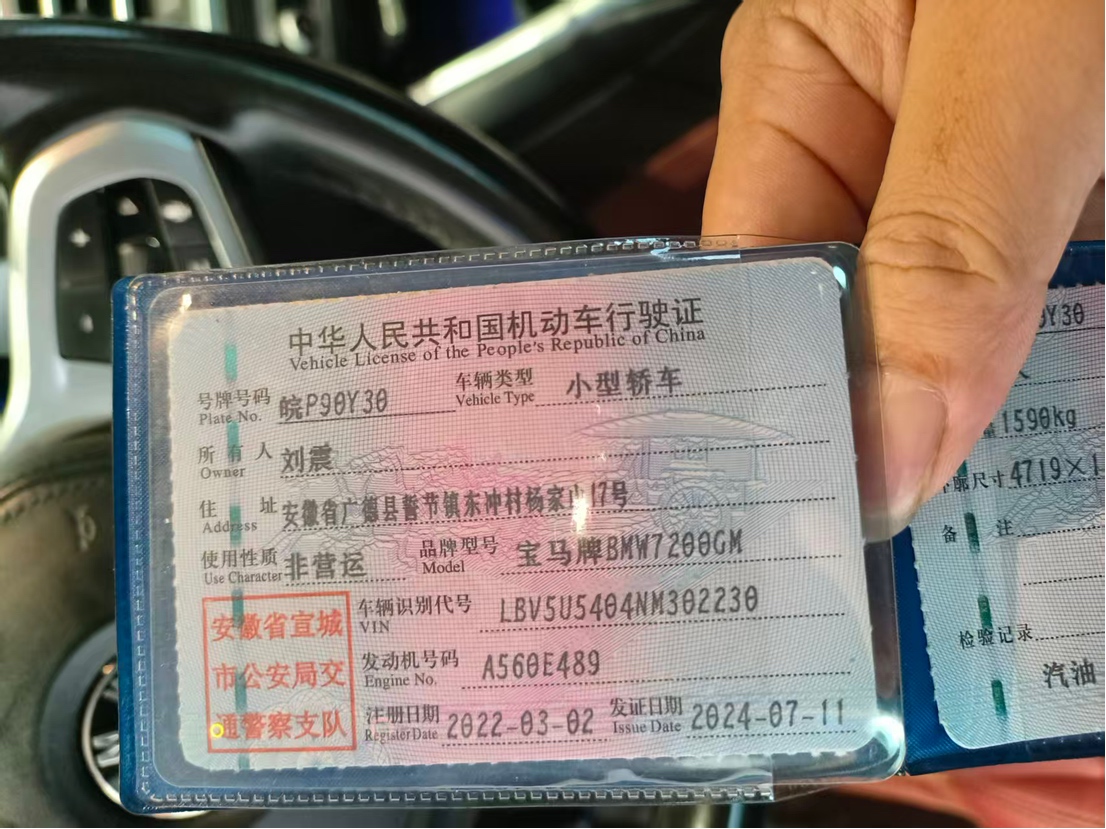 中华人民共和国机动车行驶证
Vehicle License of the People's Republic of China
号牌号码 皖P90Y30 车辆类型 小型轿车
Plate No. Vehicle Type
所有人 刘震
Owner
住址 安徽省广德县誓节镇东冲村杨家山17号
Address
使用性质 非营运 品牌型号 宝马牌BMW7200GM
Use Character Model
安徽省宣城
市公安局交
通警察支队
车辆识别代号 LBV5U5404NM302230
VIN
发动机号码 A560E489
Engine No.
注册日期 2022-03-02 发证日期 2024-07-11
Register Date Issue Date
Y30
人
量 1590kg
廓尺寸 4719×1
备注
检验记录
汽油